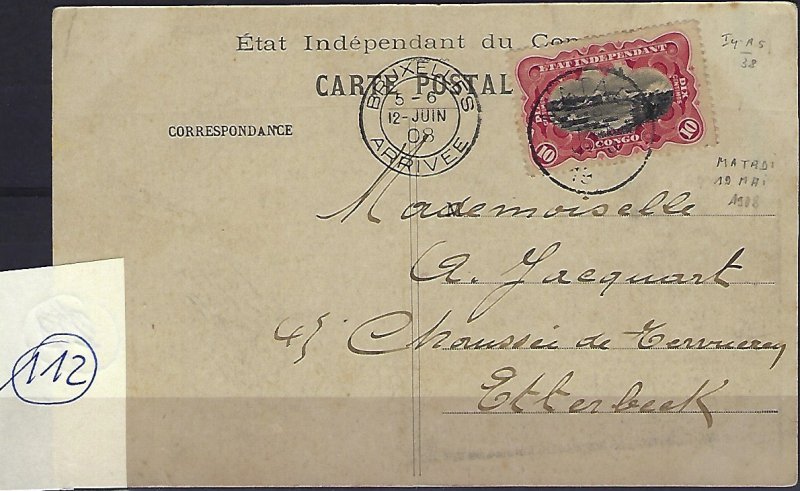 État Indépendant du Con
CARTE POSTAL
CORRESPONDANCE
BRUXELLES
5-6
12-JUIN
08
ARRIVÉE
ETAT INDEPENDANT
DIX
CENTIMES
10
10
CONGO
38
MATADI
19 MAI
1908
Mademoiselle
A. Jacquart
45 Chaussée de Tervueren
Etterbeek
112